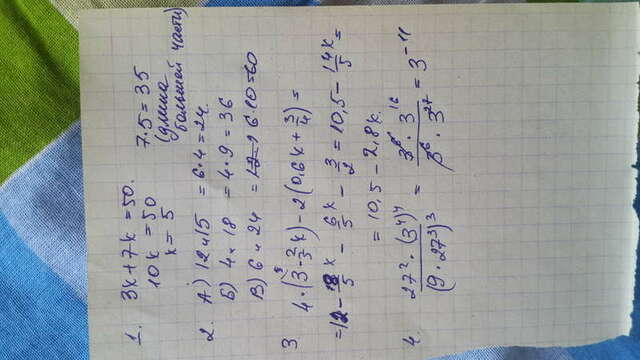 1. 3x+7x=50.
10x=50
x=5
7·5=35
(длина
большей части)
2. А) 12 и 15 = 6·4=24.
Б) 4 и 18 = 4·9=36
В) 6 и 24 = 6·10=60
3 4·(3-2/5x)-2(0,6x+3/4)=
=12-8x/5-6x/5-3/2=10,5-14x/5=
=10,5-2,8x.
4. 27²·(3⁴)⁴/(9·27³)³=3⁶·3¹⁶/3⁶·3²⁷=3⁻¹¹